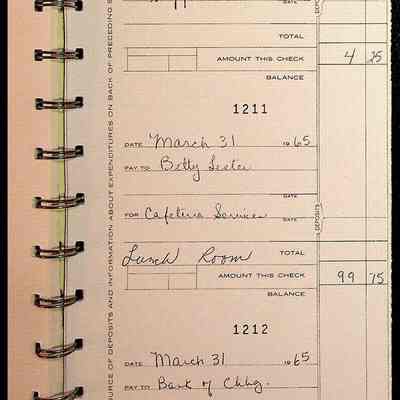 DATE
TOTAL
AMOUNT THIS CHECK 4 25
BALANCE
1211
DATE March 31 1965
PAY TO Betty Lester
DATE
FOR Cafeteria Services DATE
DEPOSITS
Lunch Room TOTAL
AMOUNT THIS CHECK 99 75
BALANCE
1212
DATE March 31 1965
PAY TO Bank of
OURCE OF DEPOSITS AND INFORMATION ABOUT EXPENDITURES ON BACK OF PRECEDING S